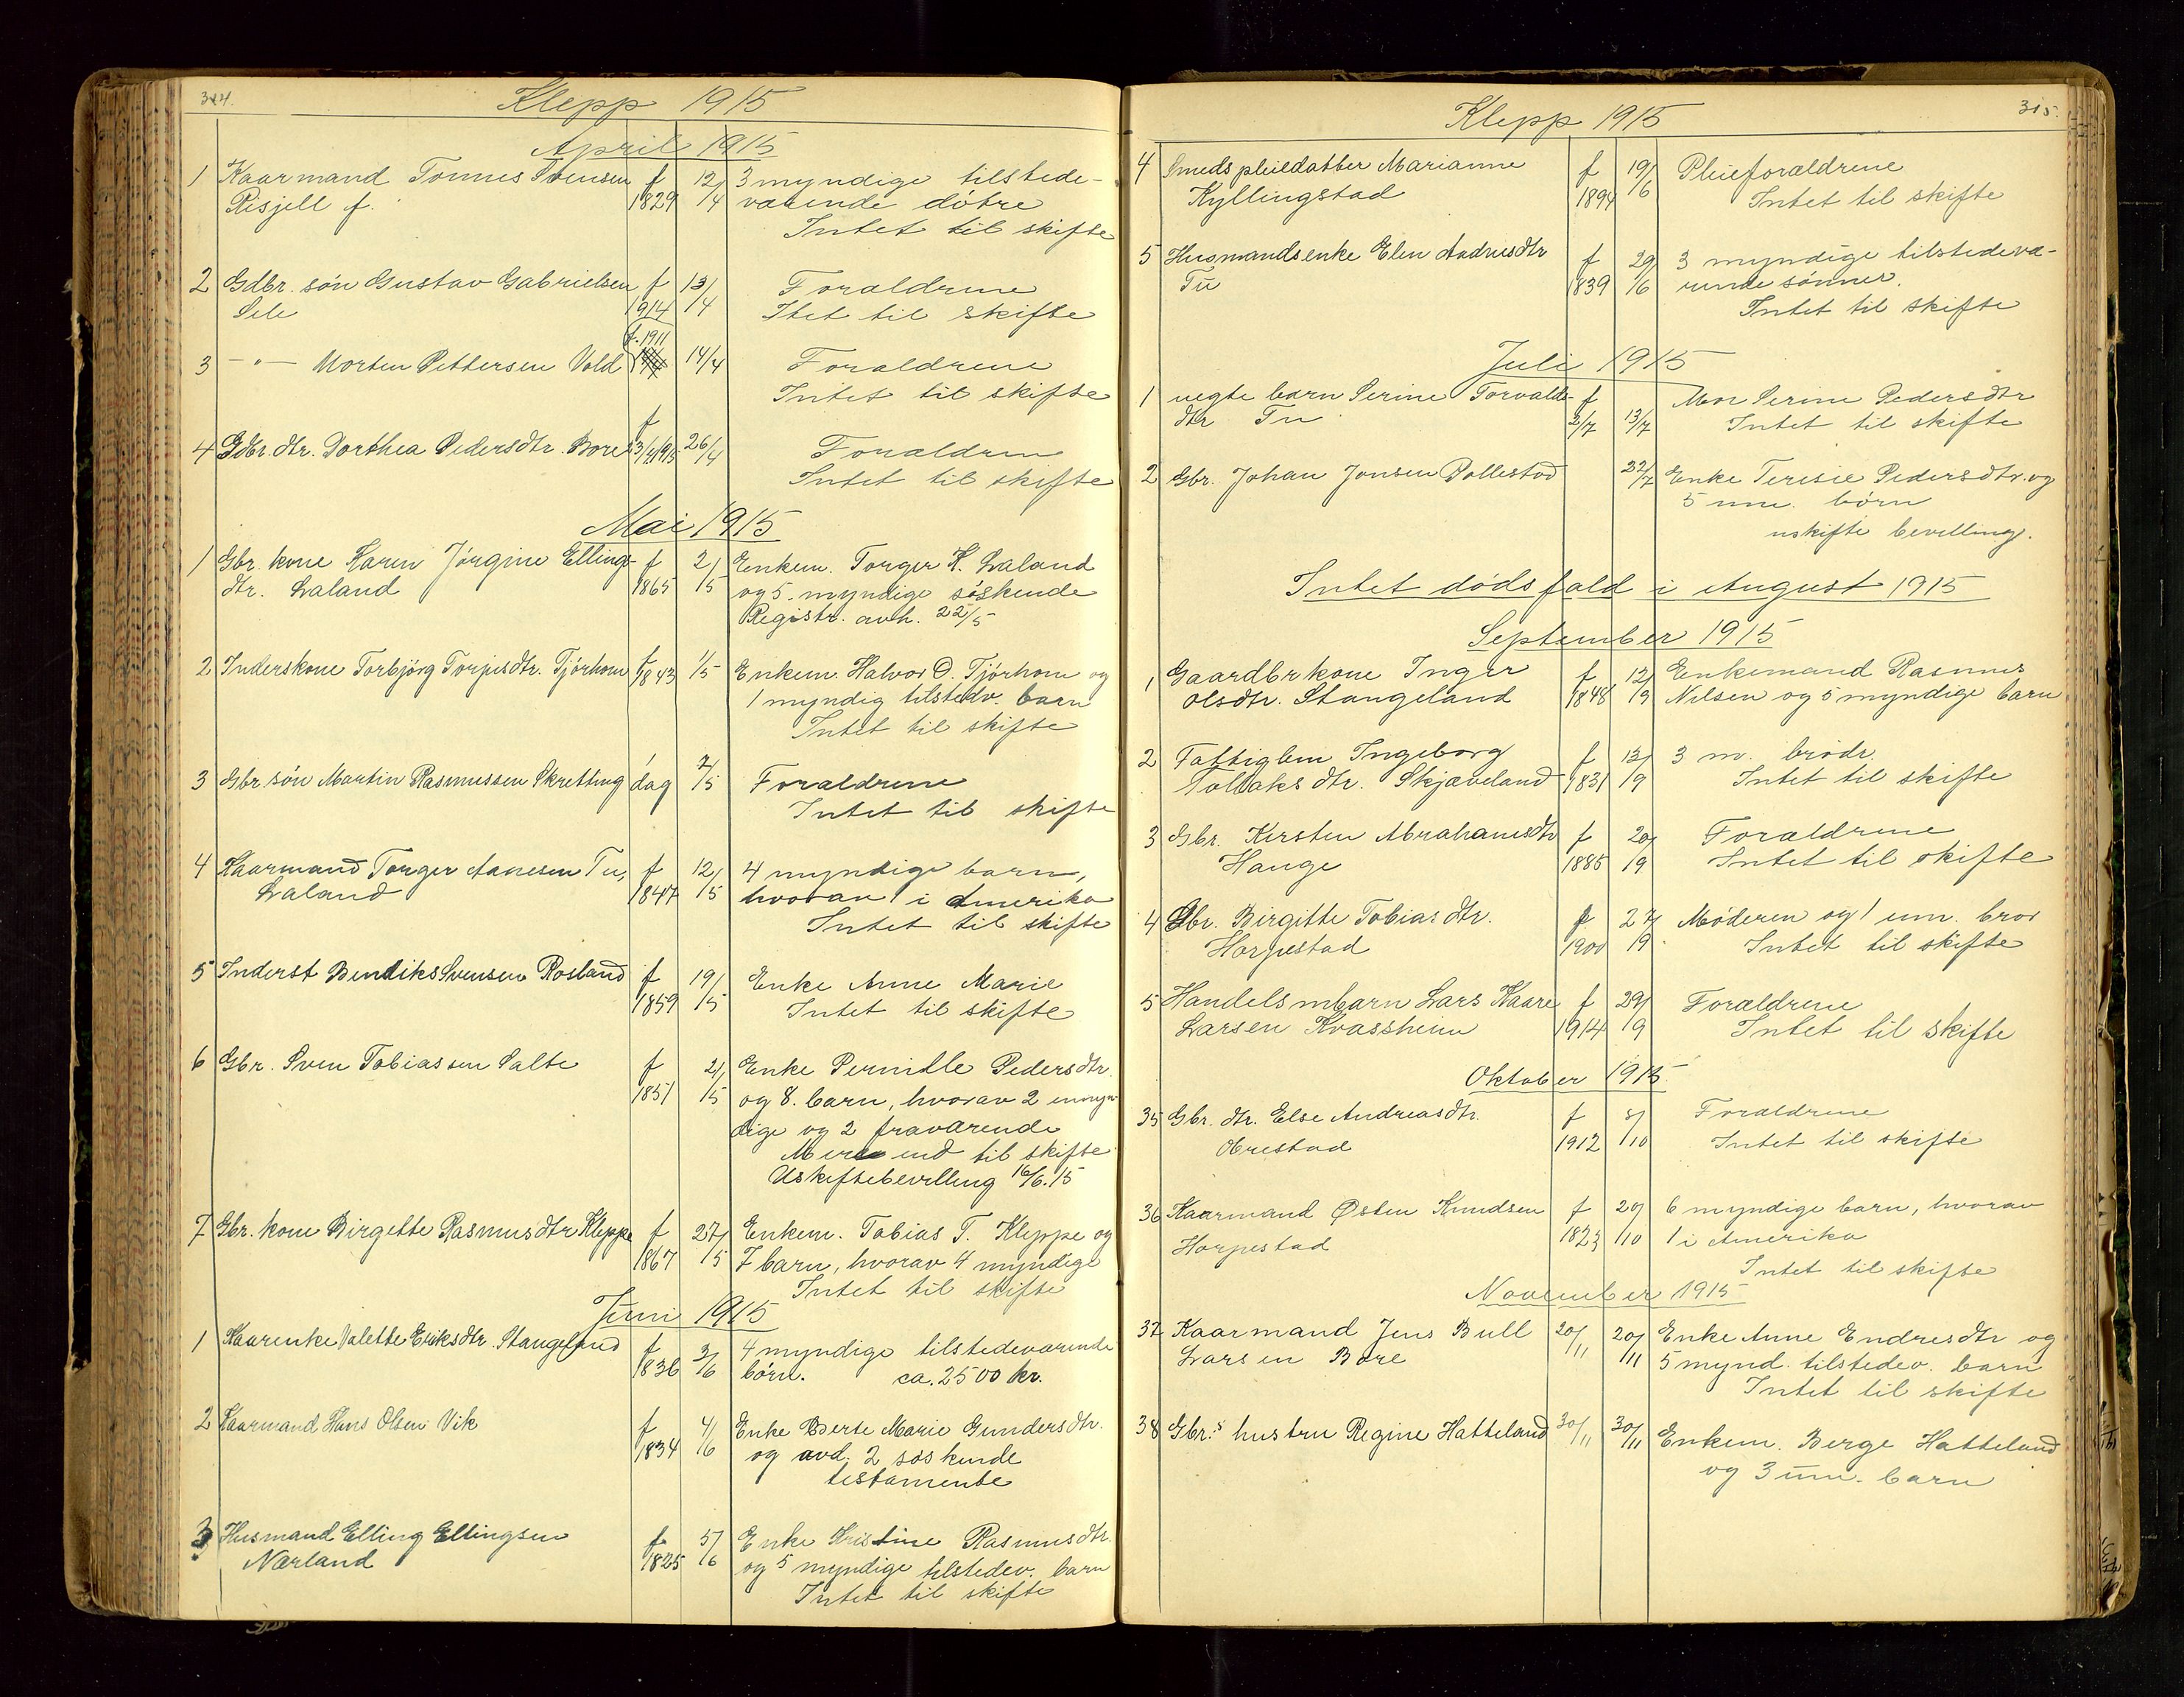 314.
Klepp 1915
April 1915
1 Kaarmand Tønnes Svensen f 12/ 3 myndige tilstede-
Risjell f. 1829 /4 værende døtre
Intet til skifte
2 Gdbr. søn Gustav Gabrielsen f 13/ Foraldrene
Sele 1914 /4 Itet til skifte
f. 1911
3 —"— Morten Pettersen Vold 14/4 Foraldrene
Intet til skifte
f
4 Gdbr. dtr. Dorthea Pedersdtr. Bore 23/4 1915 26/4 Foraldrene
Intet til skifte
Mai 1915
1 Gbr. kone Karen Jørgine Ellings- f 2/ Enkem. Torger K. Laland
dtr. Laland 1865 /5 og 5. myndige søskende
Registr. avh. 22/5
2 Inderskone Torbjørg Torjusdtr. Tjørhom f 1843 1/5 Enkem. Halvor O. Tjørhom og
1 myndig tilstedv. barn
Intet til skifte
3 Gbr. søn Martin Rasmussen Skretting 1 dag 7/5 Foraldrene
Intet til skifte
4 Kaarmand Torger Aanesen Tu, f 12/ 4 myndige barn,
Laland 1847 /5 hvorav 1 i Amerika
Intet til skifte
5 Inderst Bendiks Svensen Rosland f 19/ Enke Anne Marie
1859 /5 Intet til skifte
6 Gbr. Sven Tobiassen Salte f 21/ Enke Pernille Pedersdtr.
1851 /5 og 8. barn, hvorav 2 umyn-
dige og 2 fraværende
Mere end til skifte
Uskiftebevilling 16/6.15
7 Gbr. kone Birgitte Rasmusdtr Kleppe f 27/ Enkem. Tobias T. Kleppe og
1867 /5 7 barn, hvorav 4 myndige
Intet til skifte
Juni 1915
1 Kaarenke Valette Eriksdtr. Stangeland f 3/ 4 myndige tilstedeværende
1836 /6 børn. ca. 2500 kr.
2 Kaarmand Hans Olsen Vik f 4/ Enke Berte Marie Gundersdtr.
1834 /6 og avd. 2 søskende
testamente
3 Husmand Elling Ellingsen f 5/ Enke Kristine Rasmusdtr.
Nærland 1825 /6 og 5 myndige tilstedev. barn
Intet til skifte
315.
Klepp 1915
4 Smeds pleiedatter Marianne f 19/ Pleieforaldrene
Kyllingstad 1894 /6 Intet til skifte
5 Husmandsenke Elen Andreasdtr f 29/ 3 myndige tilstedevæ-
Tu 1839 /6 rende sønner.
Intet til skifte
Juli 1915
1 uegte barn Serine Torvalds- f Mor Serine Pedersdtr
dtr Tu 2/7 13/7 Intet til skifte
2 Gbr. Johan Jonsen Pollestad 22/7 Enke Teresie Pedersdtr. og
5 um. børn
uskifte bevilling.
Intet dødsfald i August 1915
September 1915
1 Gaardbrkone Inger f 12/ Enkemand Rasmus
Olsdtr. Stangeland 1848 /9 Nilsen og 5 myndige barn
2 Fattiglem Ingeborg f 13/ 3 m. brødr.
Tollaksdtr. Skjæveland 1831 /9 Intet til skifte
3 Gbr. Kirsten Abrahamsdtr f 20/ Foraldrene
Hauge 1885 /9 Intet til skifte
4 Gbr. Birgitte Tobiasdtr. f 27/ Møderen og 1 um. bror
Horpestad 1900 /9 Intet til skifte
5 Handelsmbarn Lars Kaare f 29/ Foraldrene
Larsen Kvassheim 1914 /9 Intet til skifte
Oktober 1915.
35 Gbr. dtr. Else Andreasdtr. f 8/ Foraldrene
Orrestad 1912 /10 Intet til skifte
36 Kaarmand Østen Knudsen f 20/ 6 myndige barn, hvorav
Horpestad 1823 /10 1 i Amerika
Intet til skifte
November 1915
37 Kaarmand Jens Bull 20/11 20/11 Enke Anne Endresdtr og
Larsen Bore 5 mynd. tilstedev. barn
Intet til skifte
38 Gbr.s hustru Regine Hatteland 30/11 30/11 Enkem. Berge Hatteland
og 3 um. barn